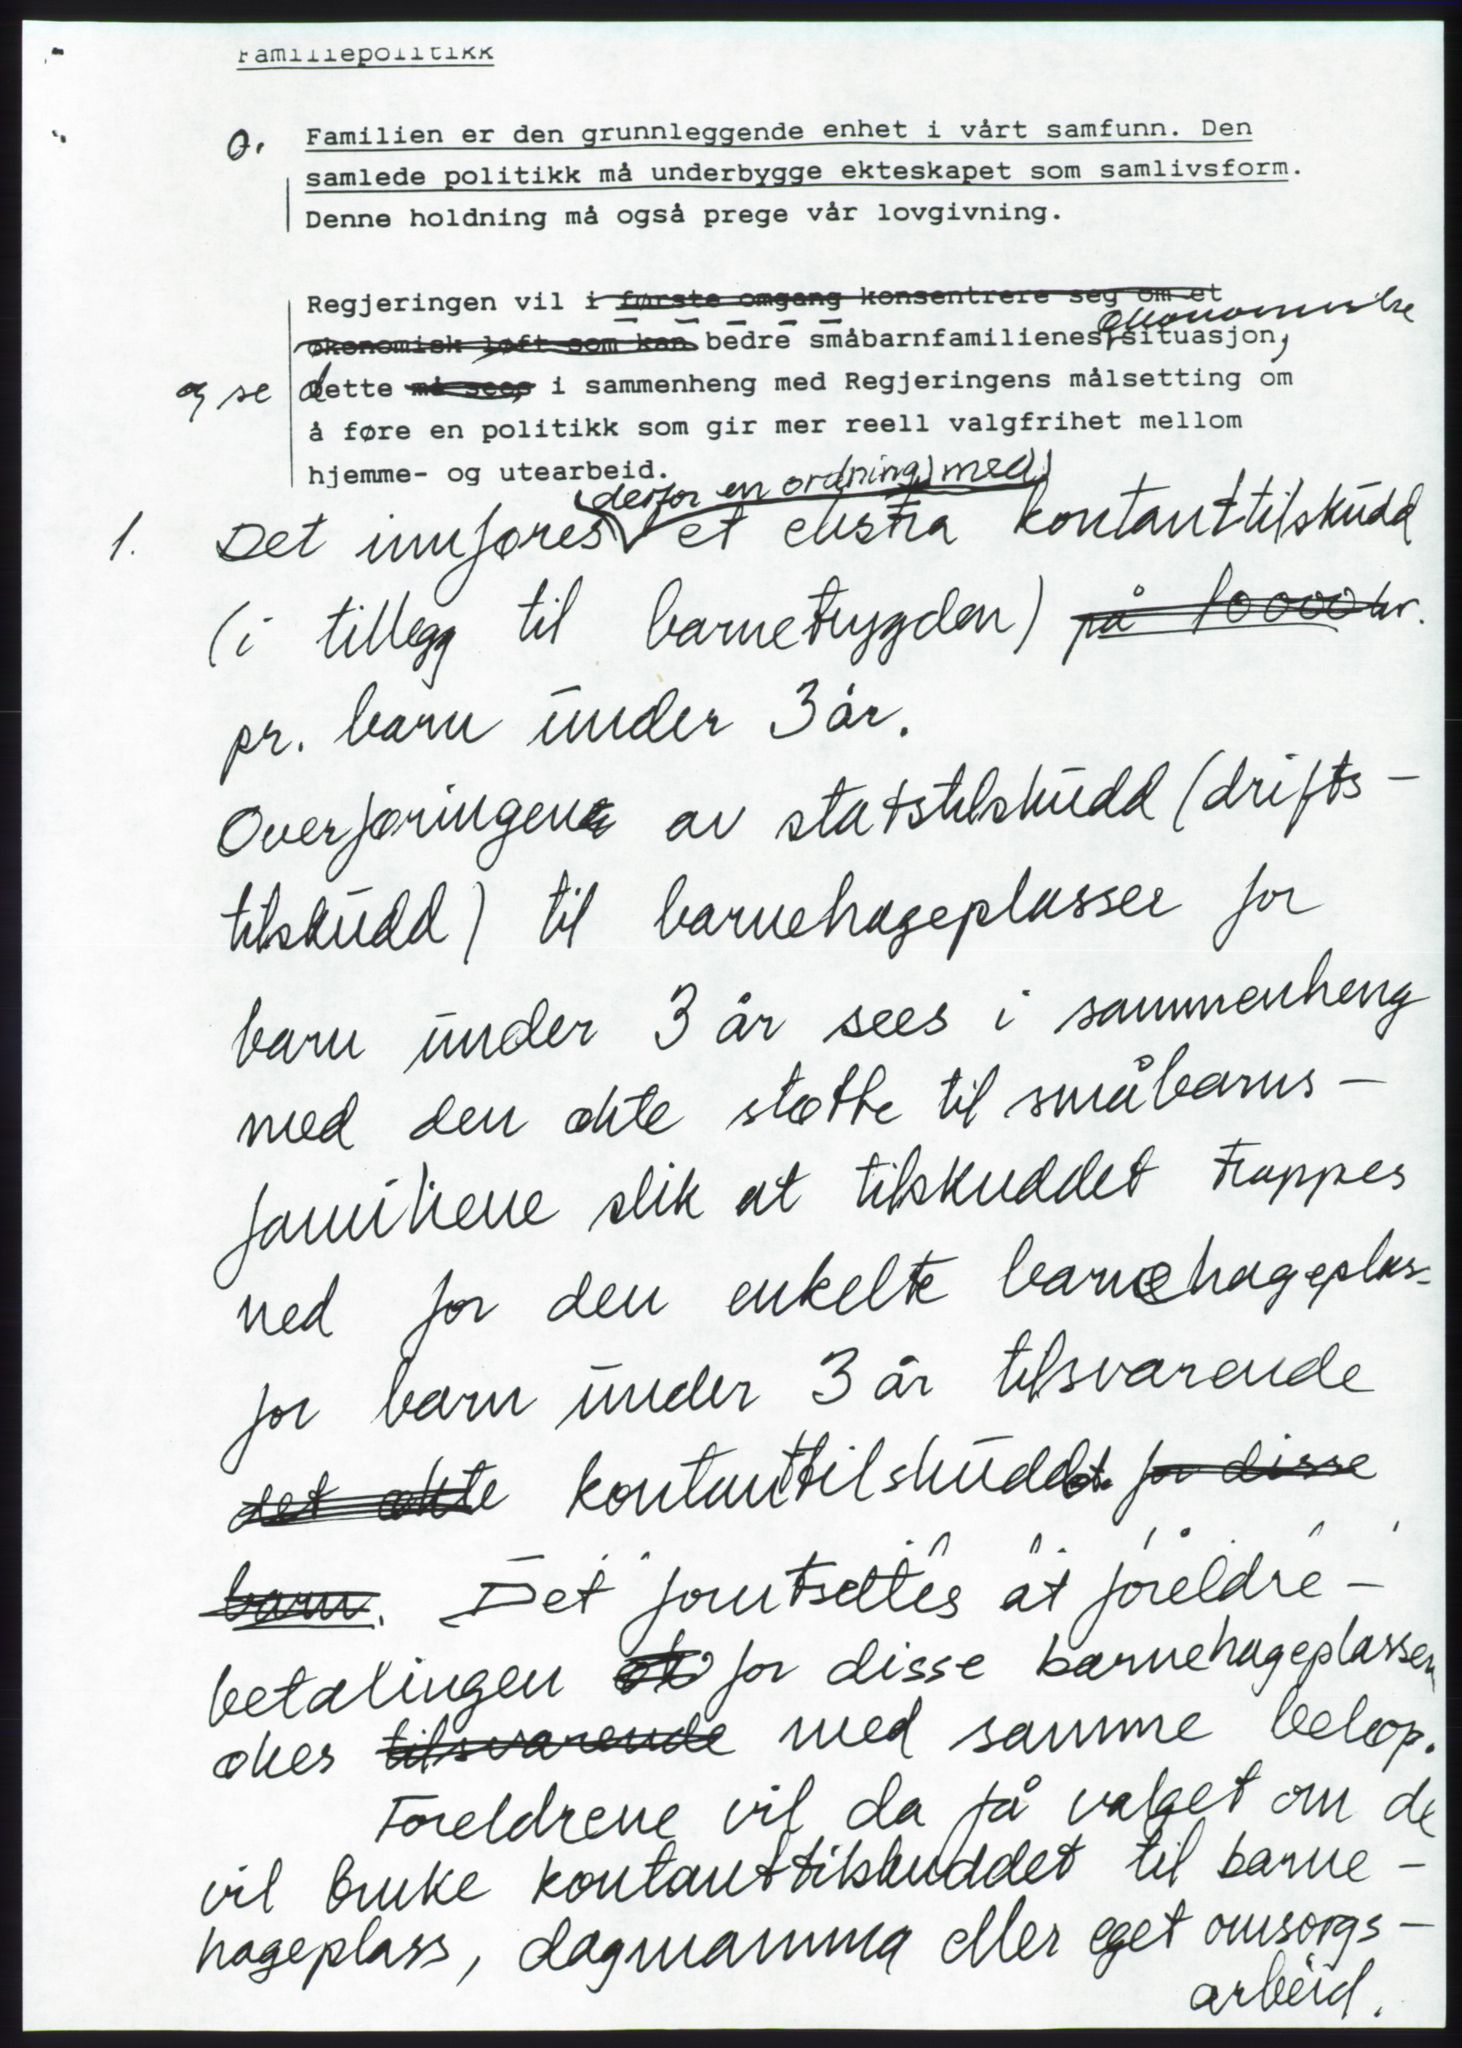 Familiepolitikk
0. Familien er den grunnleggende enhet i vårt samfunn. Den
samlede politikk må underbygge ekteskapet som samlivsform.
Denne holdning må også prege vår lovgivning.
Regjeringen vil i første omgang konsentrere seg om et
økonomiske
økonomisk løft som kan bedre småbarnfamilienes situasjon,
og se dette må sees, i sammenheng med Regjeringens målsetting om
å føre en politikk som gir mer reell valgfrihet mellom
hjemme- og utearbeid.
derfor en ordning med
1. Det innføres et ekstra kontanttilskudd
(i tillegg til barnetrygden) på 10 000 kr.
pr. barn under 3 år.
Overføringene av statstilskudd (drifts-
tilskudd) til barnehageplasser for
barn under 3 år sees i sammenheng
med den økte støtte til småbarns-
familiene slik at tilskuddet trappes
ned for den enkelte barnehageplas-
for barn under 3 år tilsvarende
det økte kontanttilskuddet for disse
barn. Det forutsettes at foreldre-
betalingen for disse barnehageplassen
økes tilsvarende med samme beløp.
Foreldrene vil da få valget om de
vil bruke kontanttilskuddet til barne-
hageplass, dagmamma eller eget omsorgs-
arbeid.